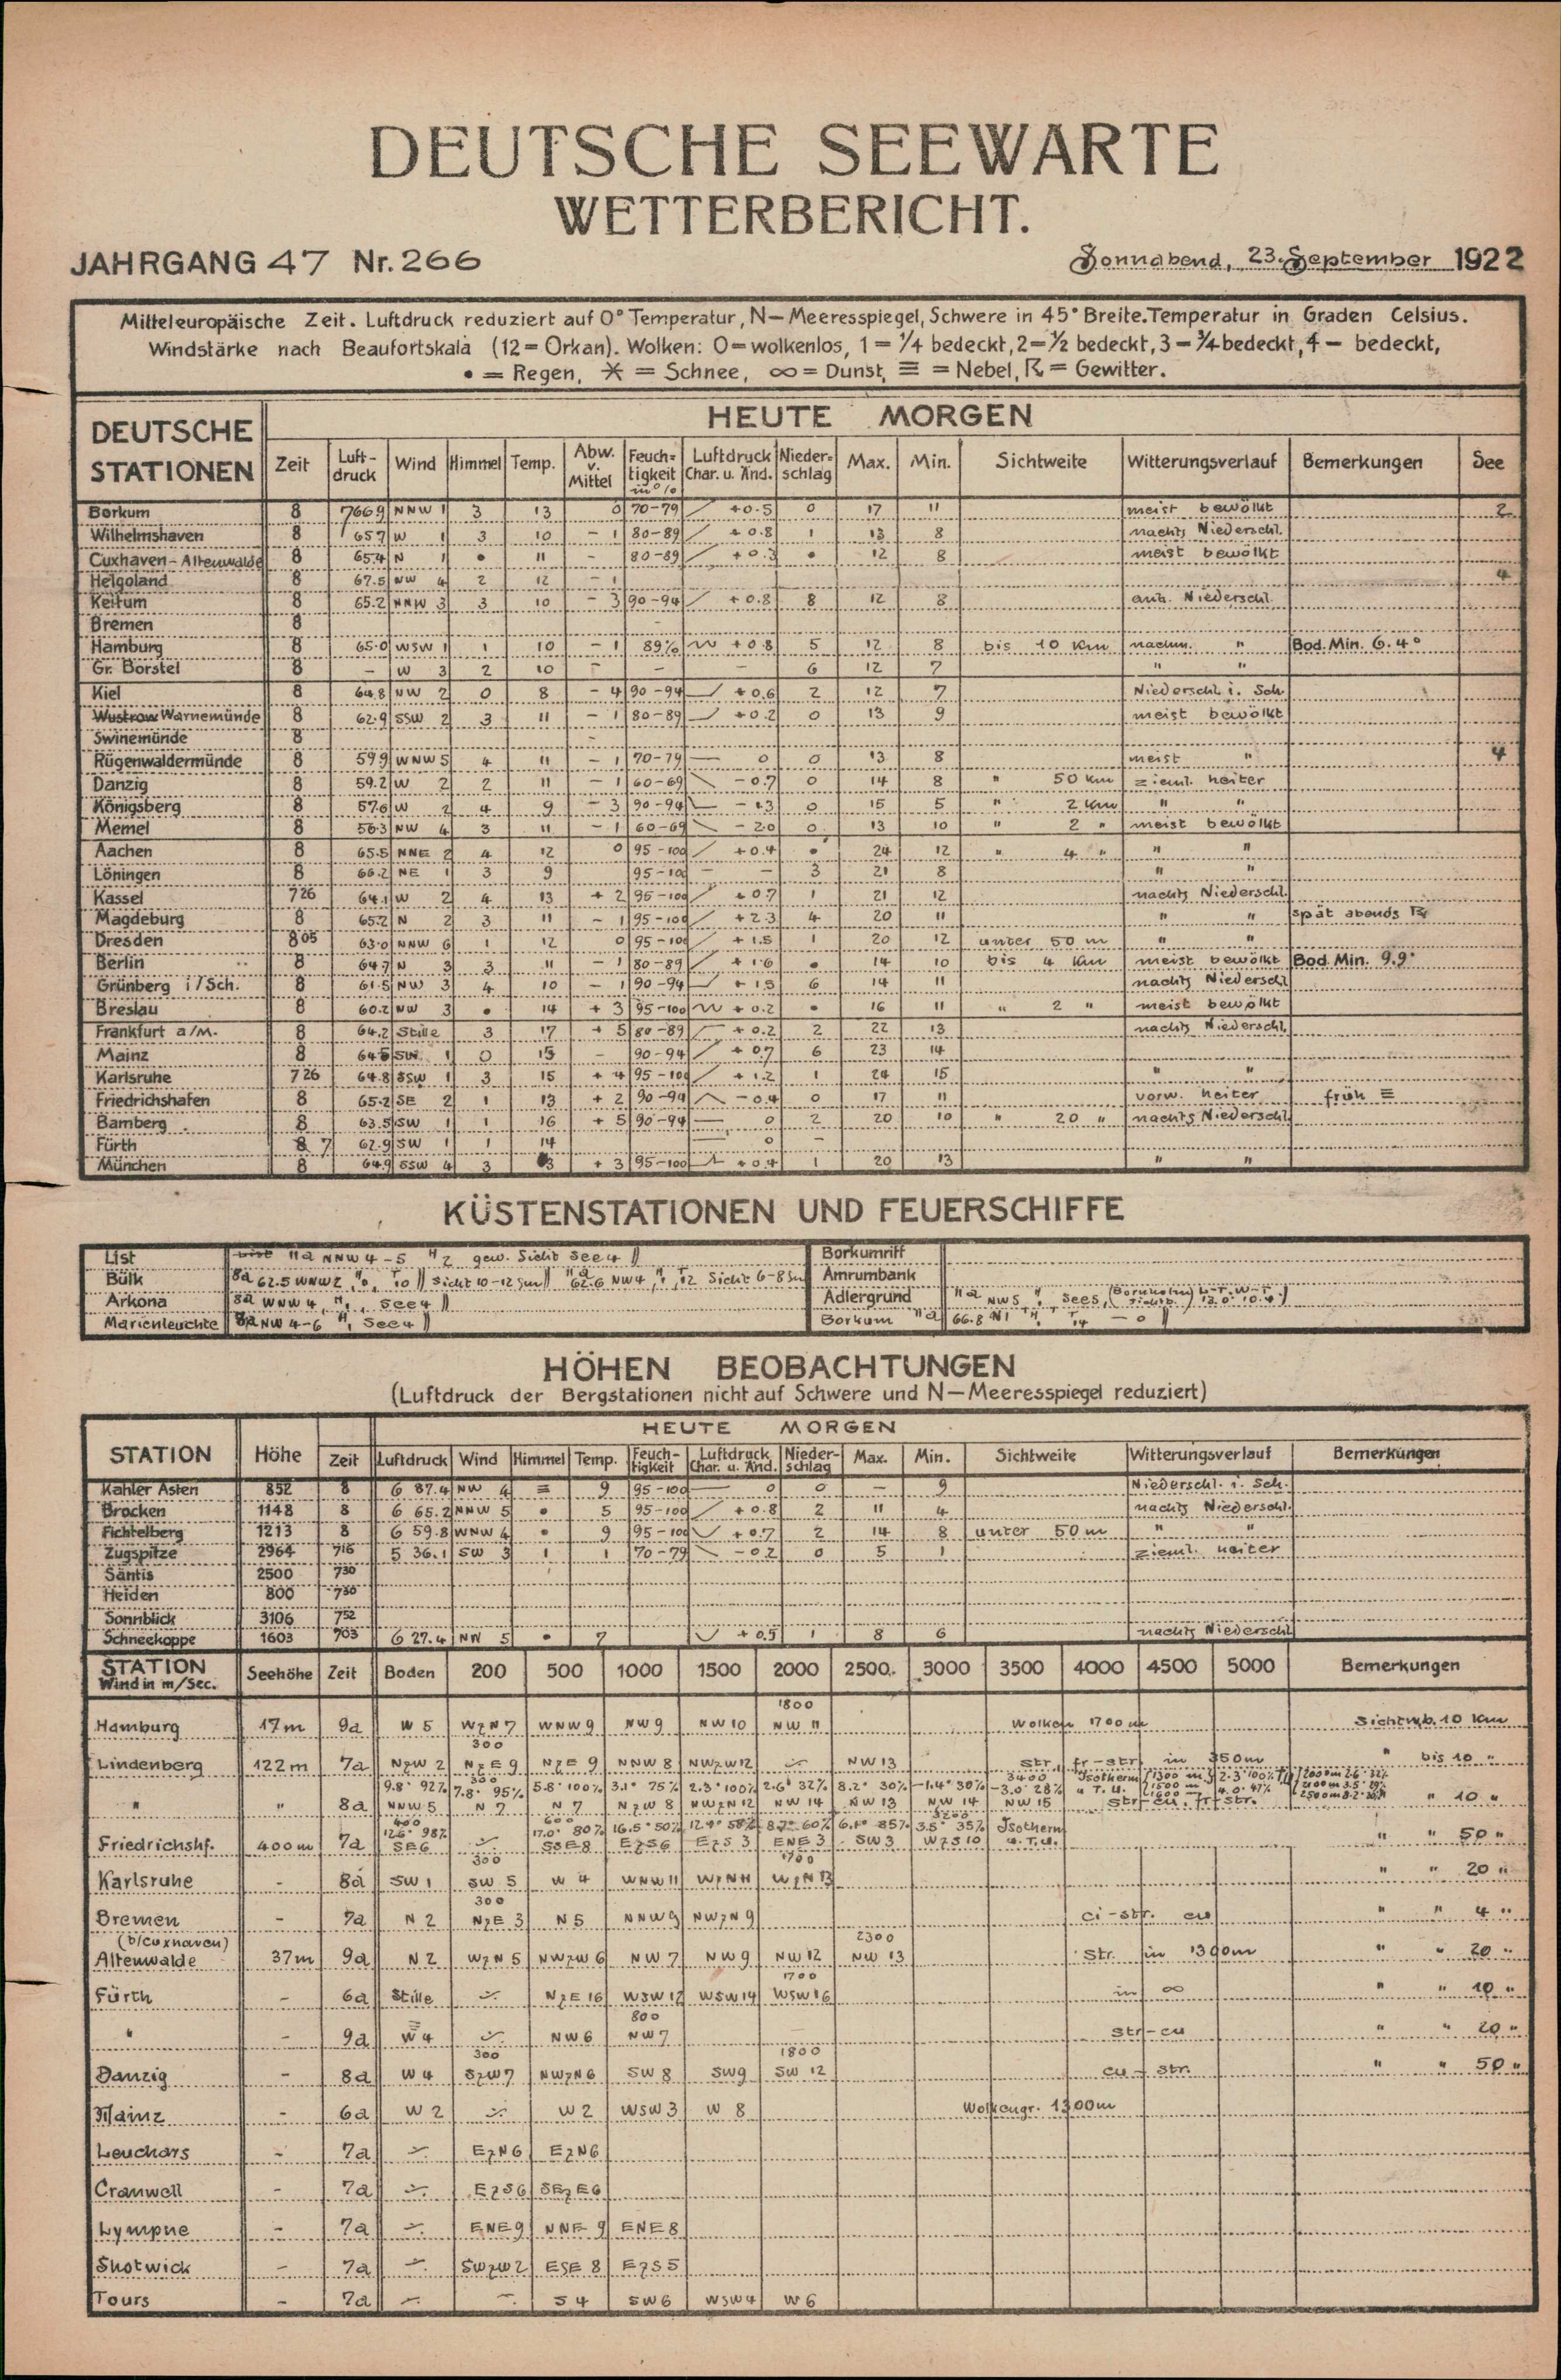 DEUTSCHE SEEWARTE
WETTERBERICHT.
JAHRGANG 47 Nr. 266 Sonnabend, 23. September 1922
Mitteleuropäische Zeit. Luftdruck reduziert auf 0° Temperatur, N—Meeresspiegel, Schwere in 45° Breite. Temperatur in Graden Celsius.
Windstärke nach Beaufortskala (12=Orkan). Wolken: 0=wolkenlos, 1=¼ bedeckt, 2=½ bedeckt, 3=¾ bedeckt, 4= bedeckt,
• = Regen, ✶ = Schnee, ∞ = Dunst, ≡ = Nebel, ☈ = Gewitter.
DEUTSCHE STATIONEN HEUTE MORGEN
Zeit Luft-druck Wind Himmel Temp. Abw. v. Mittel Feuch-tigkeit in % Luftdruck Char. u. Änd. Nieder-schlag Max. Min. Sichtweite Witterungsverlauf Bemerkungen See
Borkum 8 766.9 NNW 1 3 13 0 70-79 +0.5 0 17 11 meist bewölkt 2
Wilhelmshaven 8 65.7 W 1 3 10 -1 80-89 +0.8 1 13 8 nachts Niederschl.
Cuxhaven-Altenwalde 8 65.4 N 1 • 11 - 80-89 +0.3 • 12 8 meist bewölkt
Helgoland 8 67.5 NW 4 2 12 -1 4
Keitum 8 65.2 NNW 3 3 10 -3 90-94 +0.8 8 12 8 anh. Niederschl.
Bremen 8
Hamburg 8 65.0 WSW 1 1 10 -1 89% +0.8 5 12 8 bis 10 Km nachm. " Bod. Min. 6.4°
Gr. Borstel 8 - W 3 2 10 - - - 6 12 7 " "
Kiel 8 64.8 NW 2 0 8 -4 90-94 +0.6 2 12 7 Niederschl. i. Sch.
Wustrow Warnemünde 8 62.9 SSW 2 3 11 -1 80-89 +0.2 0 13 9 meist bewölkt
Swinemünde 8 -
Rügenwaldermünde 8 59.9 WNW 5 4 11 -1 70-79 0 0 13 8 meist " 4
Danzig 8 59.2 W 2 2 11 -1 60-69 -0.7 0 14 8 " 50 Km zieml. heiter
Königsberg 8 57.6 W 2 4 9 -3 90-94 0 15 5 " 2 Km " "
Memel 8 56.3 NW 4 3 11 -1 60-69 -2.0 0 13 10 " 2 " meist bewölkt
Aachen 8 65.5 NNE 2 4 12 0 95-100 +0.4 • 24 12 " 4 " " "
Löningen 8 66.2 NE 1 3 9 95-100 - - 3 21 8 " "
Kassel 7 26 64.1 W 2 4 13 +2 95-100 +0.7 1 21 12 nachts Niederschl.
Magdeburg 8 65.2 N 2 3 11 -1 95-100 +2.3 4 20 11 " " spät abends ☈
Dresden 8 05 63.0 NNW 6 1 12 0 95-100 +1.5 1 20 12 unter 50 m " "
Berlin 8 64.7 N 3 3 11 -1 80-89 +1.6 • 14 10 bis 4 Km meist bewölkt Bod. Min. 9.9°
Grünberg i/Sch. 8 61.5 NW 3 4 10 -1 90-94 6 14 11 nachts Niederschl.
Breslau 8 60.2 NW 3 • 14 +3 95-100 +0.2 • 16 11 " 2 " meist bewölkt
Frankfurt a/M. 8 64.2 Stille 3 17 +5 80-89 +0.2 2 22 13 nachts Niederschl.
Mainz 8 64.5 SW 1 0 15 - 90-94 +0.7 6 23 14
Karlsruhe 7 26 64.8 SSW 1 3 15 +4 95-100 +1.2 1 24 15 " "
Friedrichshafen 8 65.2 SE 2 1 13 +2 90-94 -0.4 0 17 11 vorw. heiter früh ≡
Bamberg 8 63.5 SW 1 1 16 +5 90-94 0 2 20 10 " 20 " nachts Niederschl.
Fürth 8 7 62.9 SW 1 1 14 0 -
München 8 64.9 SSW 4 3 +3 95-100 +0.4 1 20 13 " "
KÜSTENSTATIONEN UND FEUERSCHIFFE
List 11a NNW 4-5 H 2 gew. Sicht See 4 Borkumriff
Bülk 8a 62.5 WNW 2, H 0, T 10 Sicht 10-12 Sm 11a 62.6 NW 4, T 12 Sicht 6-8 Sm Amrumbank
Arkona 8a WNW 4, H 1, See 4 Adlergrund 11a NW 5 See 5, (Bornholm L-T. W-T. 12.0° 10.4)
Marienleuchte 8a NW 4-6 H 1 See 4 Borkum 11a 66.8 N 1 T 14 - 0
HÖHEN BEOBACHTUNGEN
(Luftdruck der Bergstationen nicht auf Schwere und N—Meeresspiegel reduziert)
HEUTE MORGEN
STATION Höhe Zeit Luftdruck Wind Himmel Temp. Feuch-tigkeit Luftdruck Char. u. Änd. Nieder-schlag Max. Min. Sichtweite Witterungsverlauf Bemerkungen
Kahler Asten 852 8 6 87.4 NW 4 ≡ 9 95-100 0 0 - 9 Niederschl. i. Sch.
Brocken 1148 8 6 65.2 NNW 5 • 5 95-100 +0.8 2 11 4 nachts Niederschl.
Fichtelberg 1213 8 6 59.8 WNW 4 • 9 95-100 +0.7 2 14 8 unter 50 m " "
Zugspitze 2964 7 16 5 36.1 SW 3 1 1 70-79 -0.2 0 5 1 zieml. heiter
Säntis 2500 7 30
Heiden 800 7 30
Sonnblick 3106 7 52
Schneekoppe 1603 7 03 6 27.4 NW 5 • 7 +0.5 1 8 6 nachts Niederschl
STATION Wind in m/Sec. Seehöhe Zeit Boden 200 500 1000 1500 2000 2500 3000 3500 4000 4500 5000 Bemerkungen
1800
Hamburg 17m 9a W 5 WzN 7 WNW 9 NW 9 NW 10 NW 11 Wolken 1700 m Sichtwb. 10 Km
300
Lindenberg 122m 7a NzW 2 NzE 9 NzE 9 NNW 8 NWzW 12 NW 13 str. fr-str. in 350m " bis 10 "
300 3400
9.8° 92% 7.8° 95% 5.8° 100% 3.1° 75% 2.3° 100% 2.6° 32% 8.2° 30% -1.4° 30% -3.0° 28% Isotherm u. T. U.
" " 8a NNW 5 N 7 N 7 NzW 8 NWzN 12 NW 14 NW 13 NW 14 NW 15 str-cu. fr-str. " 10 "
400 600 3200
12.6° 98% 17.0° 80% 16.5° 50% 12.4° 58% 8.7° 60% 3.5° 35% Isotherm u. T. U.
Friedrichshf. 400m 7a SE 6 SSE 8 EzS 6 EzS 3 ENE 3 SW 3 WzS 10 " " 50 "
300 1700
Karlsruhe - 8a SW 1 SW 5 W 4 WNW 11 WzN 11 WzN 13 " " 20 "
300
Bremen - 7a N 2 NzE 3 N 5 NNW 9 NWzN 9 ci-str. cu " " 4 "
(b/Cuxhaven) 2300
Altenwalde 37m 9a N 2 WzN 5 NWzW 6 NW 7 NW 9 NW 12 NW 13 str. in 1300m " " 20 "
1700
Fürth - 6a Stille NzE 16 WSW 12 WSW 14 WSW 16 in ∞ " " 10 "
800
" - 9a W 4 NW 6 NW 7 str-cu " " 20 "
300 1800
Danzig - 8a W 4 SzW 7 NWzN 6 SW 8 SW 9 SW 12 cu-str. " " 50 "
Mainz - 6a W 2 W 2 WSW 3 W 8 Wolkengr. 1300m
Leuchars - 7a EzN 6 EzN 6
Cranwell - 7a EzS 6 SEzE 6
Lympne - 7a ENE 9 NNE 9 ENE 8
Shotwick - 7a SWzW 2 ESE 8 EzS 5
Tours - 7a S 4 SW 6 WSW 4 W 6